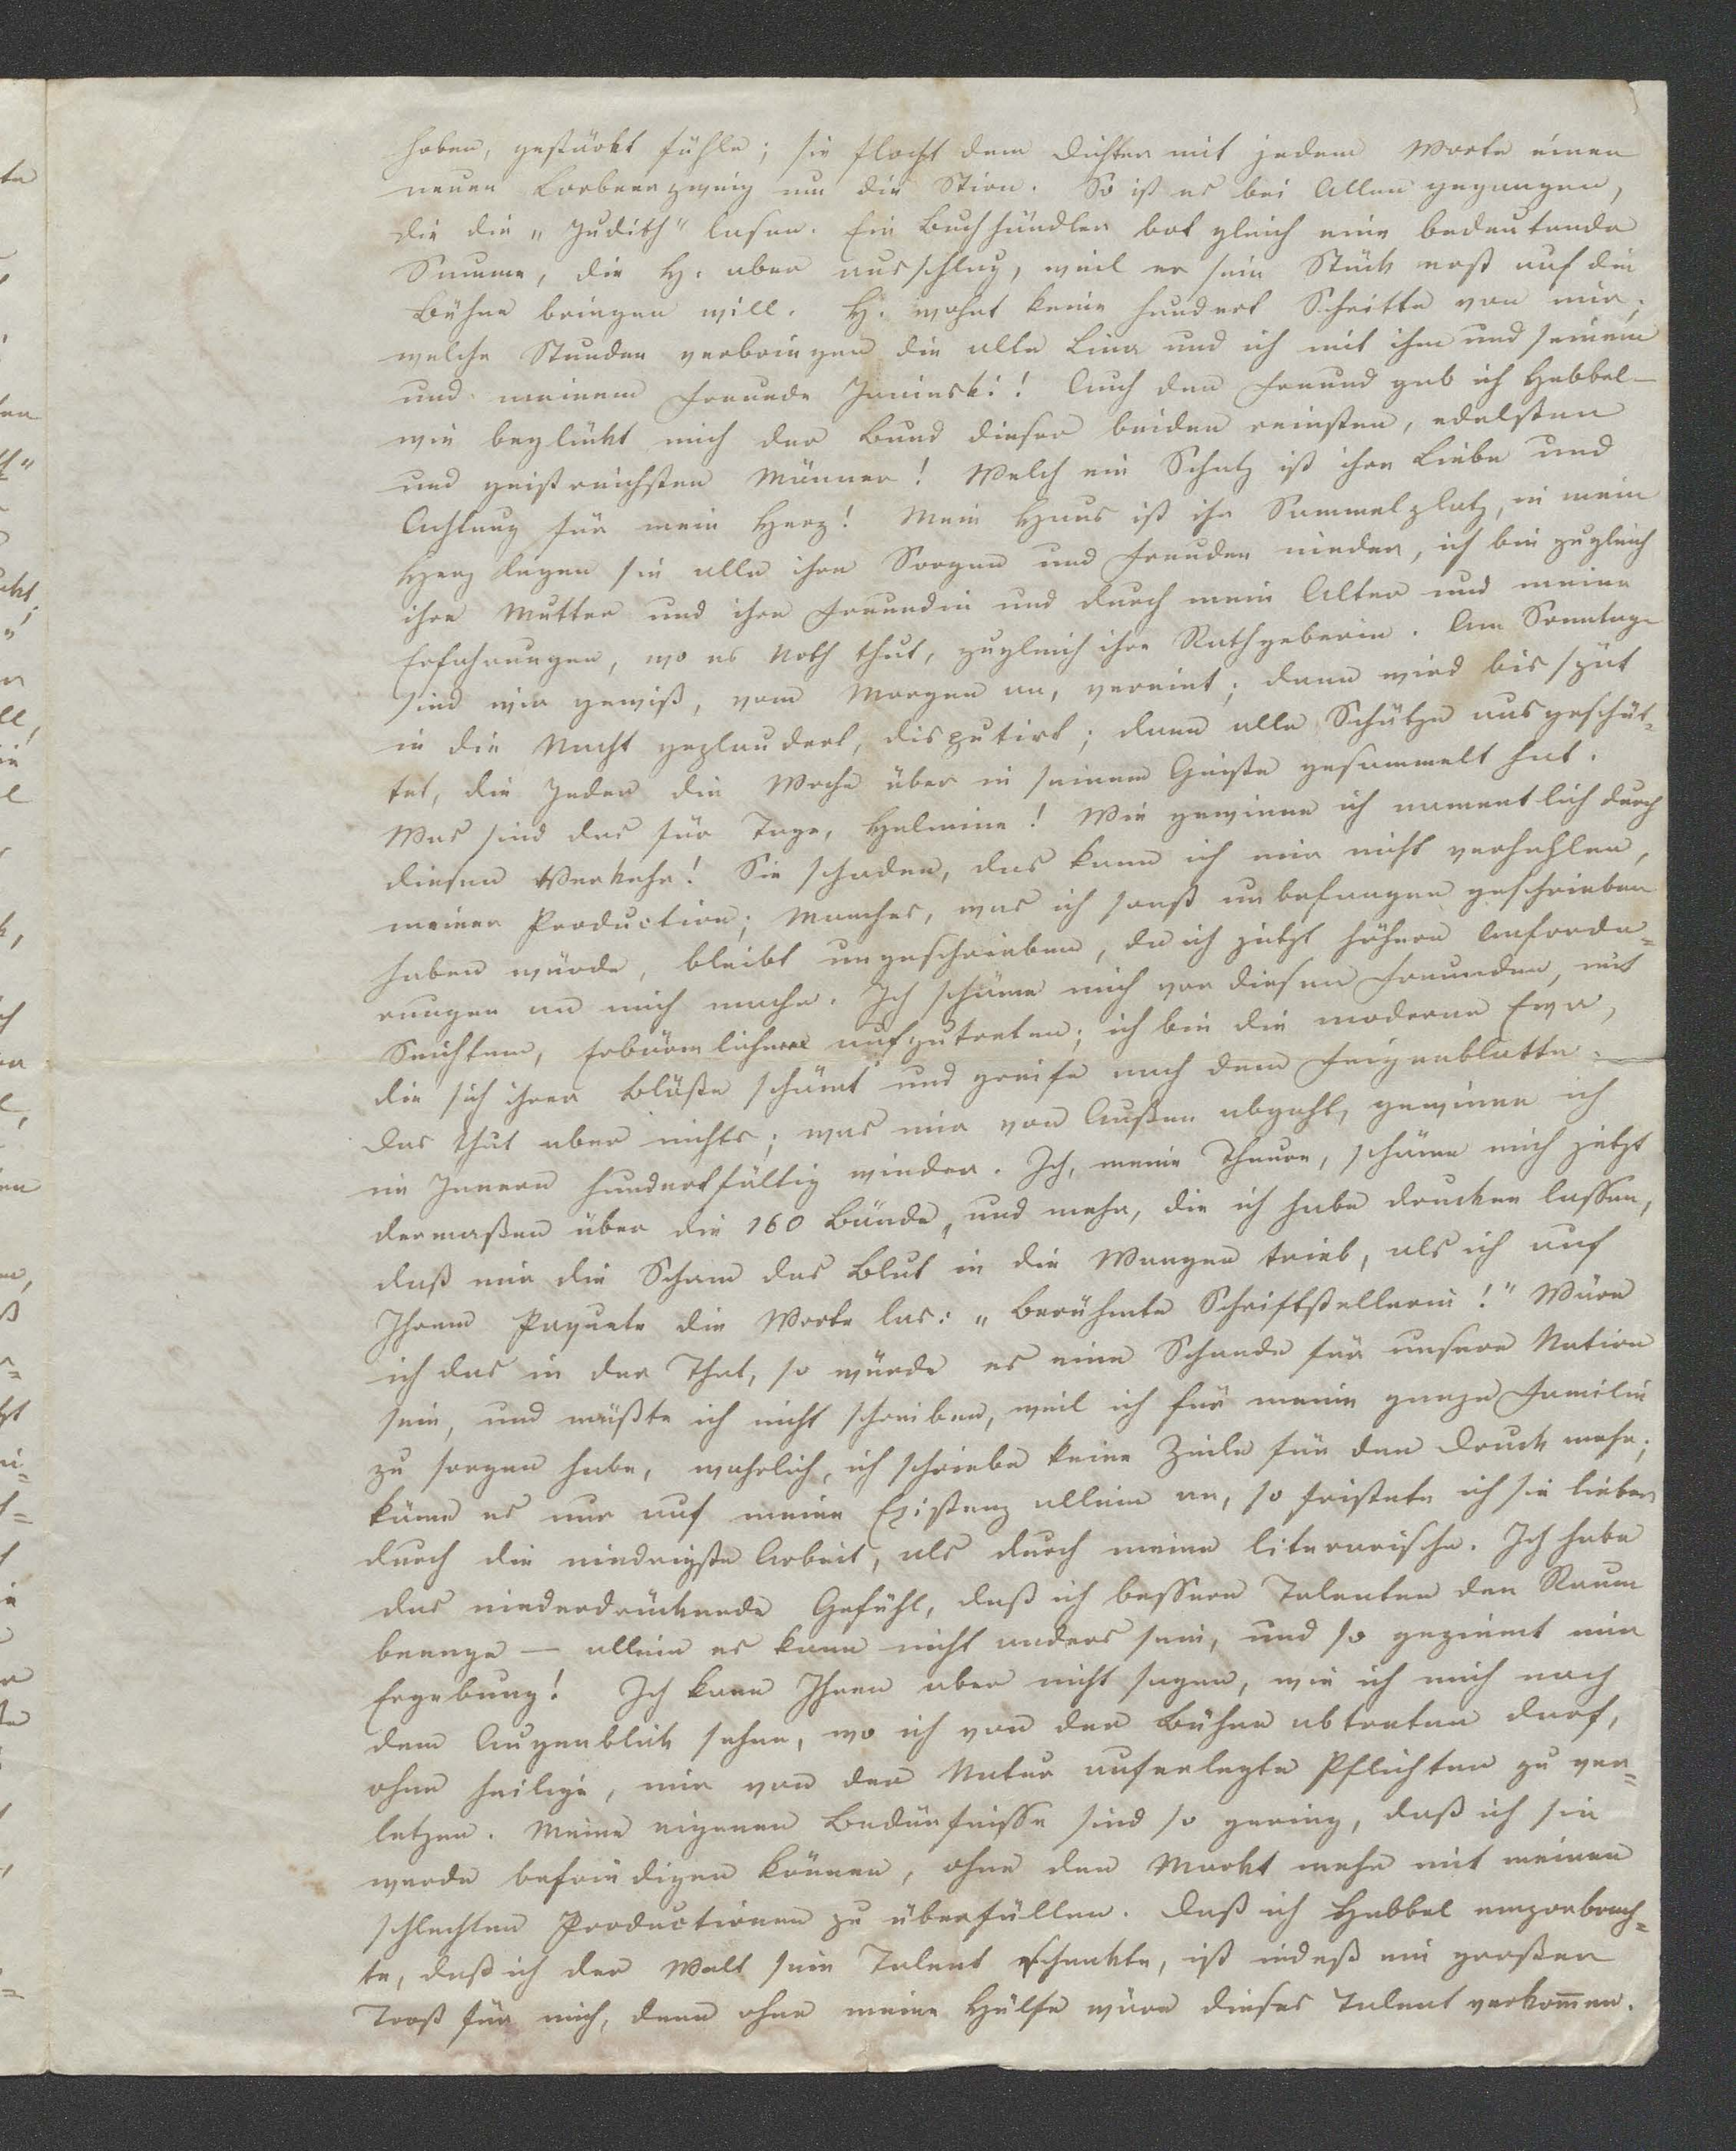 hoben, gestärkt fühle; sie flocht dem Dichter mit jedem Worte einen
neuen Lorbeerzweig um die Stirn. So ist es bei Allen gegangen,
die die „Judith" lasen. Ein Buchhändler bot gleich eine bedeutende
Summe, die H. aber ausschlug, weil er sein Stück erst auf die
Bühne bringen will. H. wohnt keine hundert Schritte von mir;
welche Stunden verbringen die alte Lina und ich mit ihm und seinem
und meinem Freunde Janinski! Auch den Freund gab ich Hebbel –
wie beglückt mich der Bund dieser beiden reinsten, edelsten
und geistreichsten Männer! Welch ein Schatz ist ihre Liebe und
Achtung für mein Herz! Mein Haus ist ihr Sammelplatz, in mein
Herz legen sie alle ihre Sorgen und Freuden nieder, ich bin zugleich
ihre Mutter und ihre Freundin und durch mein Alter und meine
Erfahrungen, wo es Noth thut, zugleich ihre Rathgeberin. Am Sonntage
sind wir gewiß, vom Morgen an, vereint; dann wird bis spät
in die Nacht geplaudert, disputirt; dann alle Schätze ausgeschüt=
tet, die Jeder die Woche über in seinem Geiste gesammelt hat.
Was sind das für Tage, Helmine! Wie gewinne ich namentlich durch
diesen Verkehr! Sie schaden, das kann ich mir nicht verhehlen,
meiner Production; Manches, was ich sonst unbefangen geschrieben
haben würde, bleibt ungeschrieben, da ich jetzt höhere Anforde=
rungen an mich mache. Ich schäme mich vor diesen Freunden, mit
Seichtem, Erbärmlichem aufzutreten; ich bin die moderne Eva,
die sich ihrer Blöße schämt und greife nach dem Feigenblatte.
Das thut aber nichts; was mir von Außen abgeht, gewinne ich
im Innern hundertfältig wieder. Ich, meine Theure, schäme mich jetzt
dermaßen über die 160 Bände, und mehr, die ich habe drucken lassen,
daß mir die Scham das Blut in die Wangen trieb, als ich auf
Ihrem Paquete die Worte las: „Berühmte Schriftstellerin!" Wäre
ich das in der That, so würde es eine Schande für unsere Nation
sein, und müßte ich nicht schreiben, weil ich für meine ganze Familie
zu sorgen habe, wahrlich, ich schriebe keine Zeile für den Druck mehr;
käme es nur auf meine Existenz allein an, so fristete ich sie lieber
durch die niedrigste Arbeit, als durch meine literarische. Ich habe
das niederdrückende Gefühl, daß ich bessern Talenten den Raum
beenge – allein es kann nicht anders sein, und so geziemt mir
Ergebung! Ich kann Ihnen aber nicht sagen, wie ich mich nach
dem Augenblick sehne, wo ich von der Bühne abtreten darf,
ohne heilige, mir von der Natur auferlegte Pflichten zu ver=
letzen. Meine eigenen Bedürfnisse sind so gering, daß ich sie
werde befriedigen können, ohne den Markt mehr mit meinen
schlechten Productionen zu überfüllen. Daß ich Hebbel emporbrach=
te, daß ich der Welt sein Talent schenkte, ist indeß ein großer
Trost für mich, denn ohne meine Hülfe wäre dieses Talent verkom̄en.